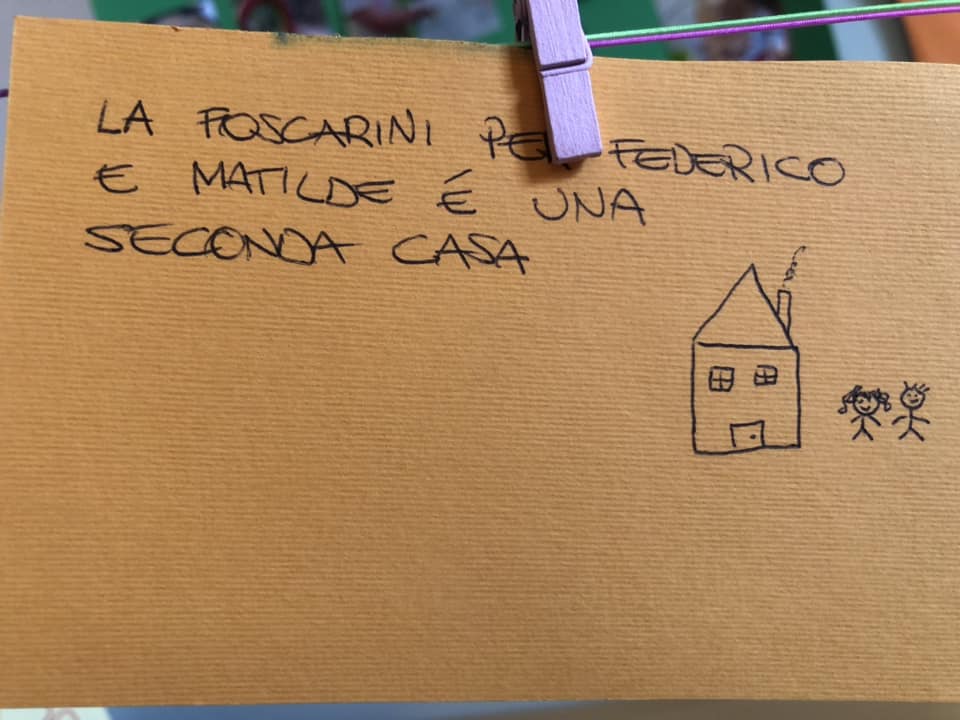 LA FOSCARINI PER FEDERICO
E MATILDE É UNA
SECONDA CASA